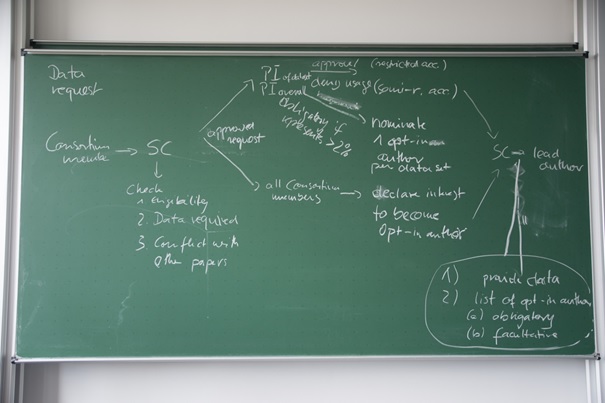 Data
request
Consortium
membe → SC
↓
Check
1. Eligibility
2. Data required
3. Conflict with
other papers
approved
request
PI of dataset approval (restricted acc)
PI overall deny usage (semi-r. acc)
obligatory if
represents > 2%
nominate
1 opt-in
author
per data set
all Consortium → declare interest
members to become
Opt-in author
SC → lead
author
1) provide data
2) list of opt-in author
(a) obligatory
(b) facultative